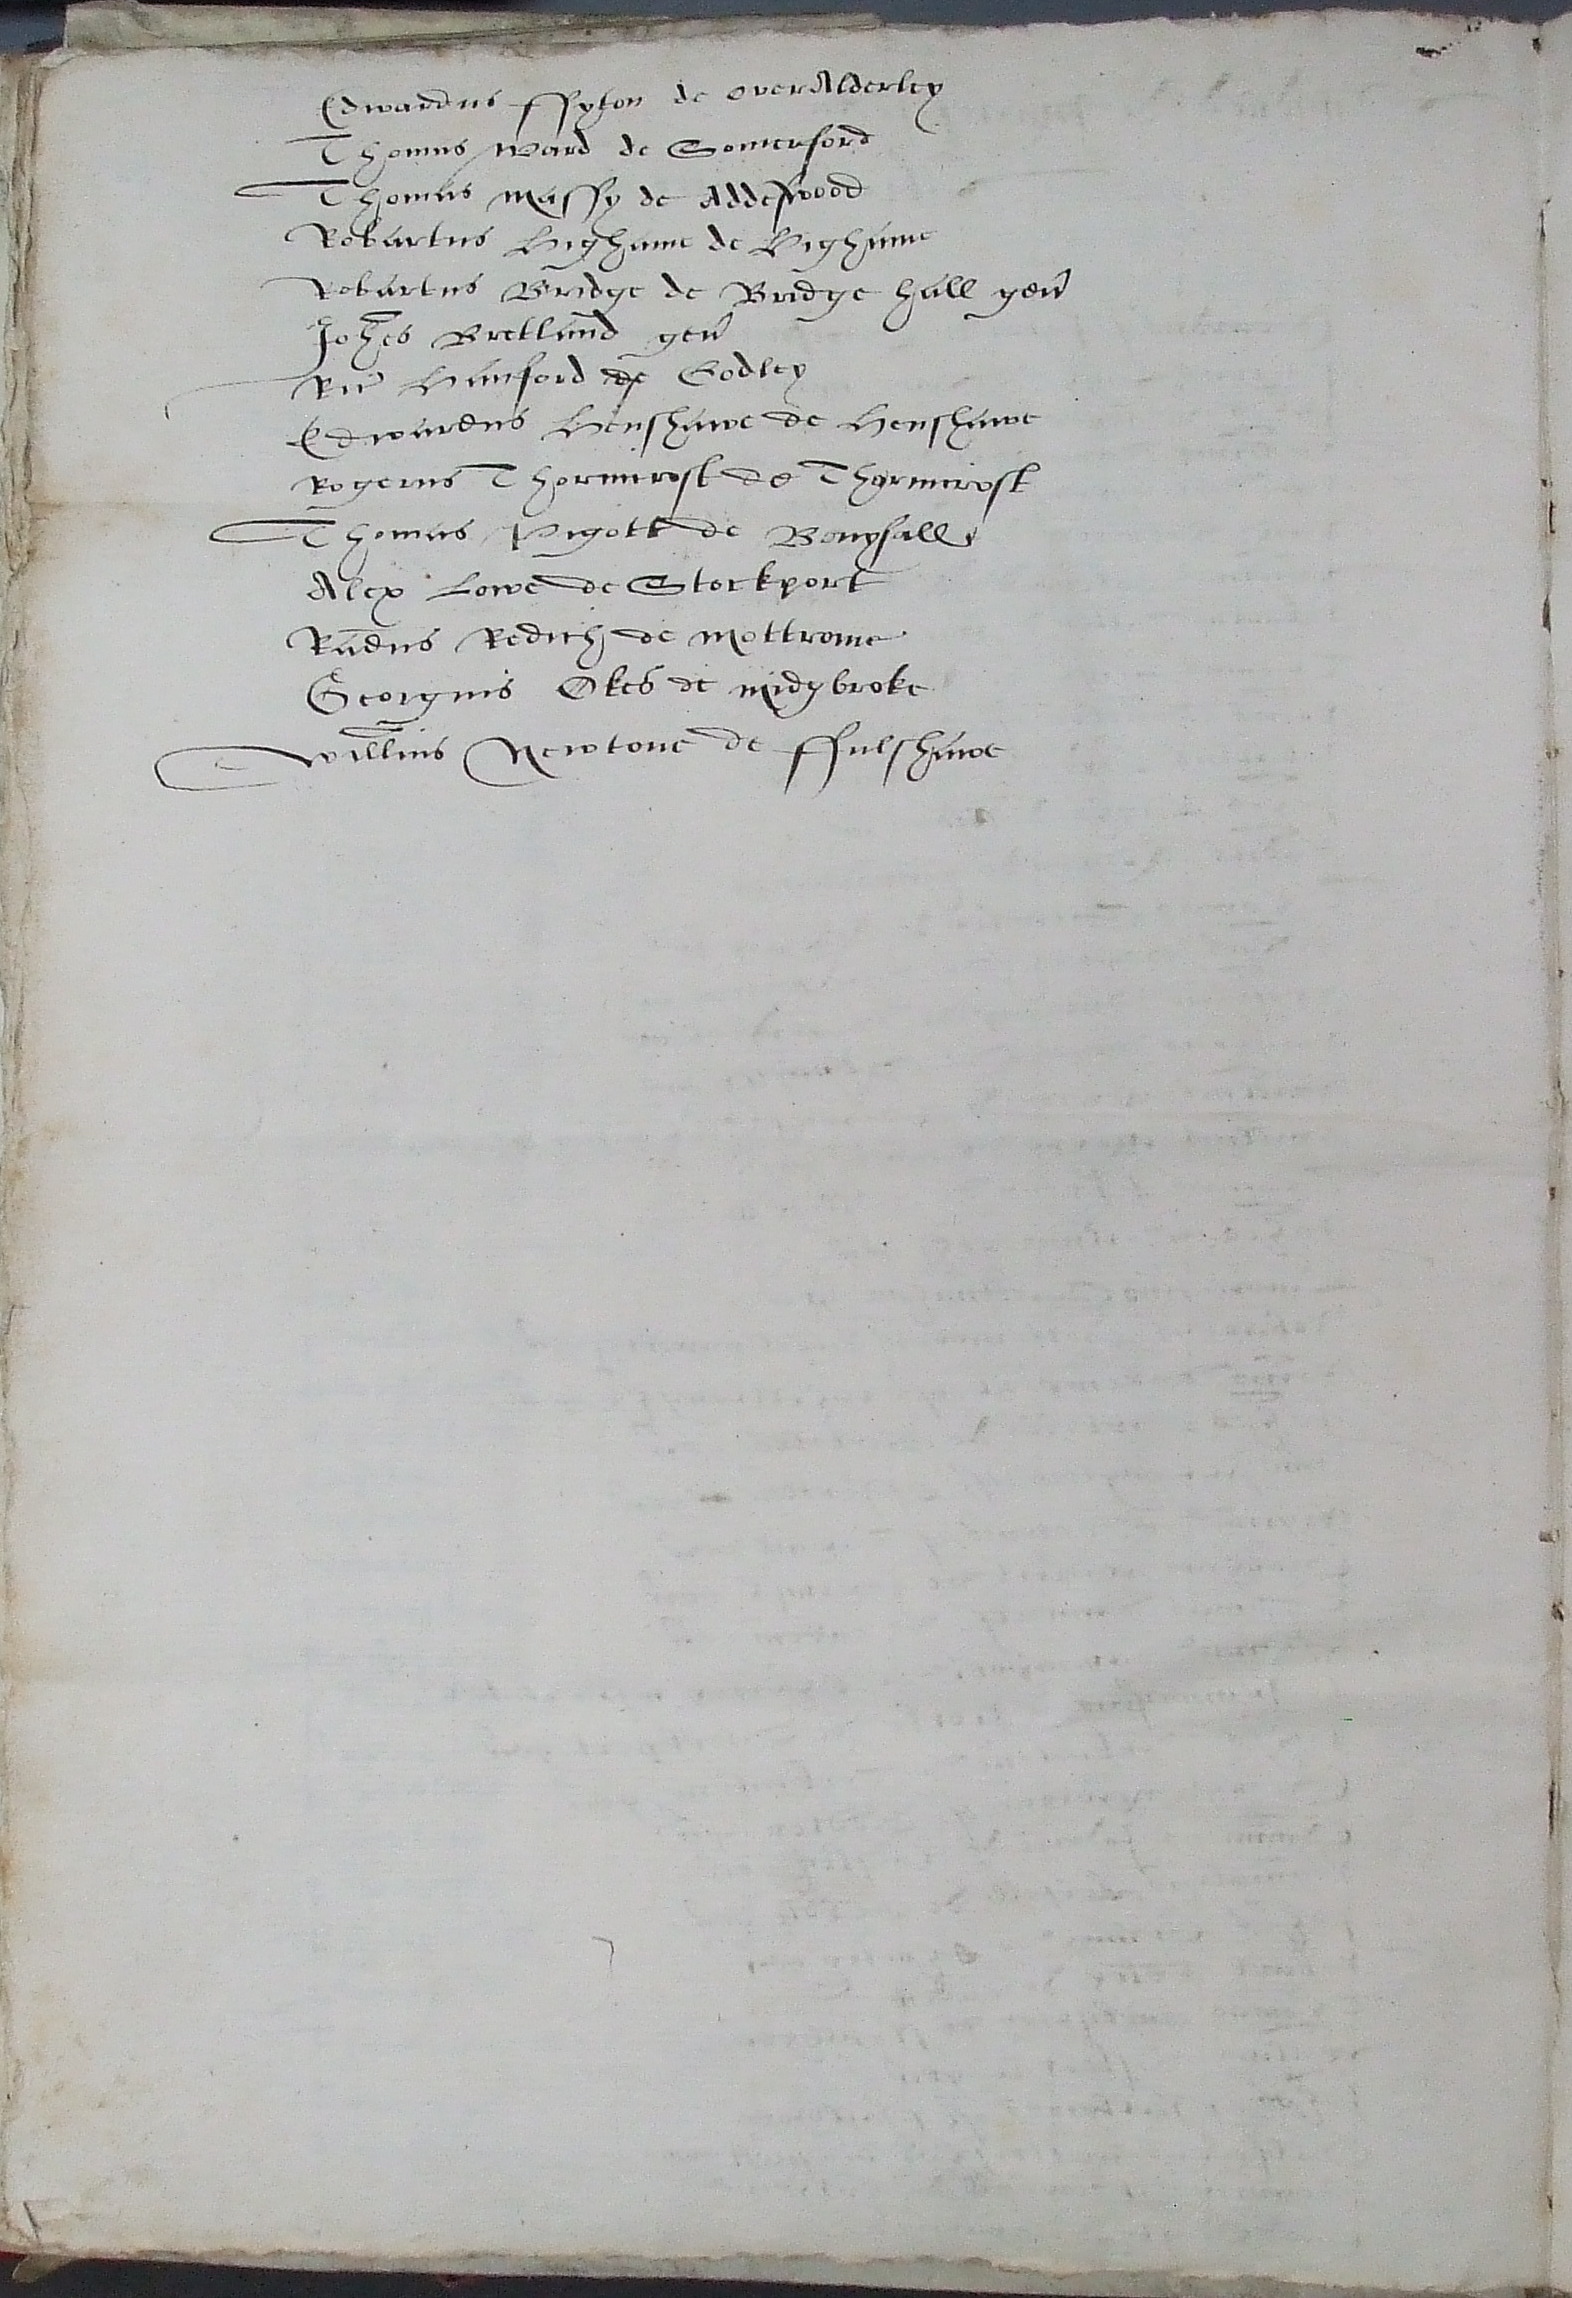 Edwardus ffyton de over Alderley
Thomas Ward de Somerford
Thomas Massy de Addeswood
Robartus Highame de Highame
Robartus Bridge de Bridge hall gen
Johes Bretland gen
Ric Hanford de Godley
Edwardus Henshawe de Henshawe
Rogerus Thornicroft de Thornicroft
Thomas Pigott de Bonyshall
Alex Lowe de Stockport
Radus Redich de Mottrome
Georgius Okes de
Willms Newtone de ffulshawe